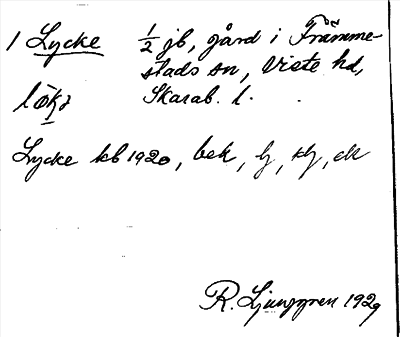 1 Lycke ½ jb, gård i Främme-
stads sn, Viste hd,
Skarab. l.
Lycke kb 1920, bek, lj,
R. Ljunggren 1929